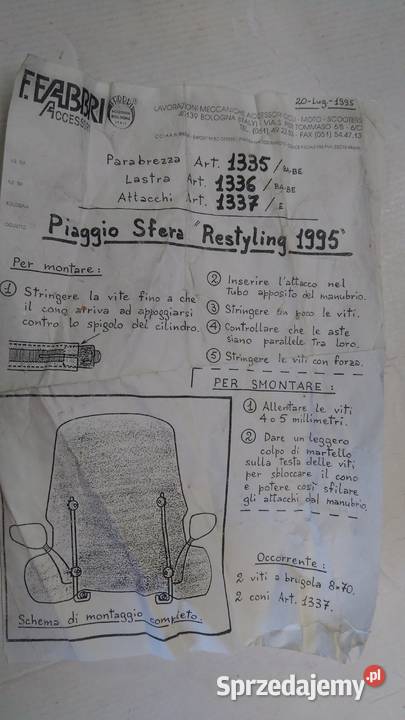 F.FABBRI
ACCESSORI
20-Lug-1995
LAVORAZIONI MECCANICHE ACCESSORI CICLI - MOTO - SCOOTERS
40139 BOLOGNA (ITALY)
TEL. (051)
FAX (051) 54.47.13
Parabrezza Art. 1335/BA-BE
Lastra Art. 1336/BA-BE
Attacchi Art. 1337/E
Piaggio Sfera "Restyling 1995"
Per montare:
① Stringere la vite fino a che
il cono arriva ad appoggiarsi
contro lo spigolo del cilindro.
② Inserire l'attacco nel
tubo apposito del manubrio.
③ Stringere un poco le viti.
④ Controllare che le aste
siano parallele tra loro.
⑤ Stringere le viti con forza.
PER SMONTARE:
① Allentare le viti
4 o 5 millimetri.
② Dare un leggero
colpo di martello
sulla testa delle viti
per sbloccare il cono
e potere così sfilare
gli attacchi dal manubrio.
Occorrente:
2 viti a brugola 8×70.
2 coni Art. 1337.
Schema di montaggio completo.
Sprzedajemy.pl